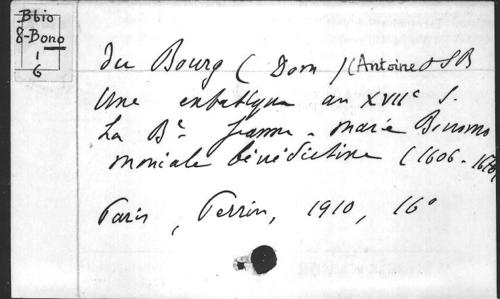 Bbio
8-Bono
1
6
du Bourg (Dom) (Antoine OSB
Une extatique au XVIIe S.
La Bse Jeanne-Marie Bonomo
moniale bénédictine (1606-1670)
Paris, Perrin, 1910, 16°